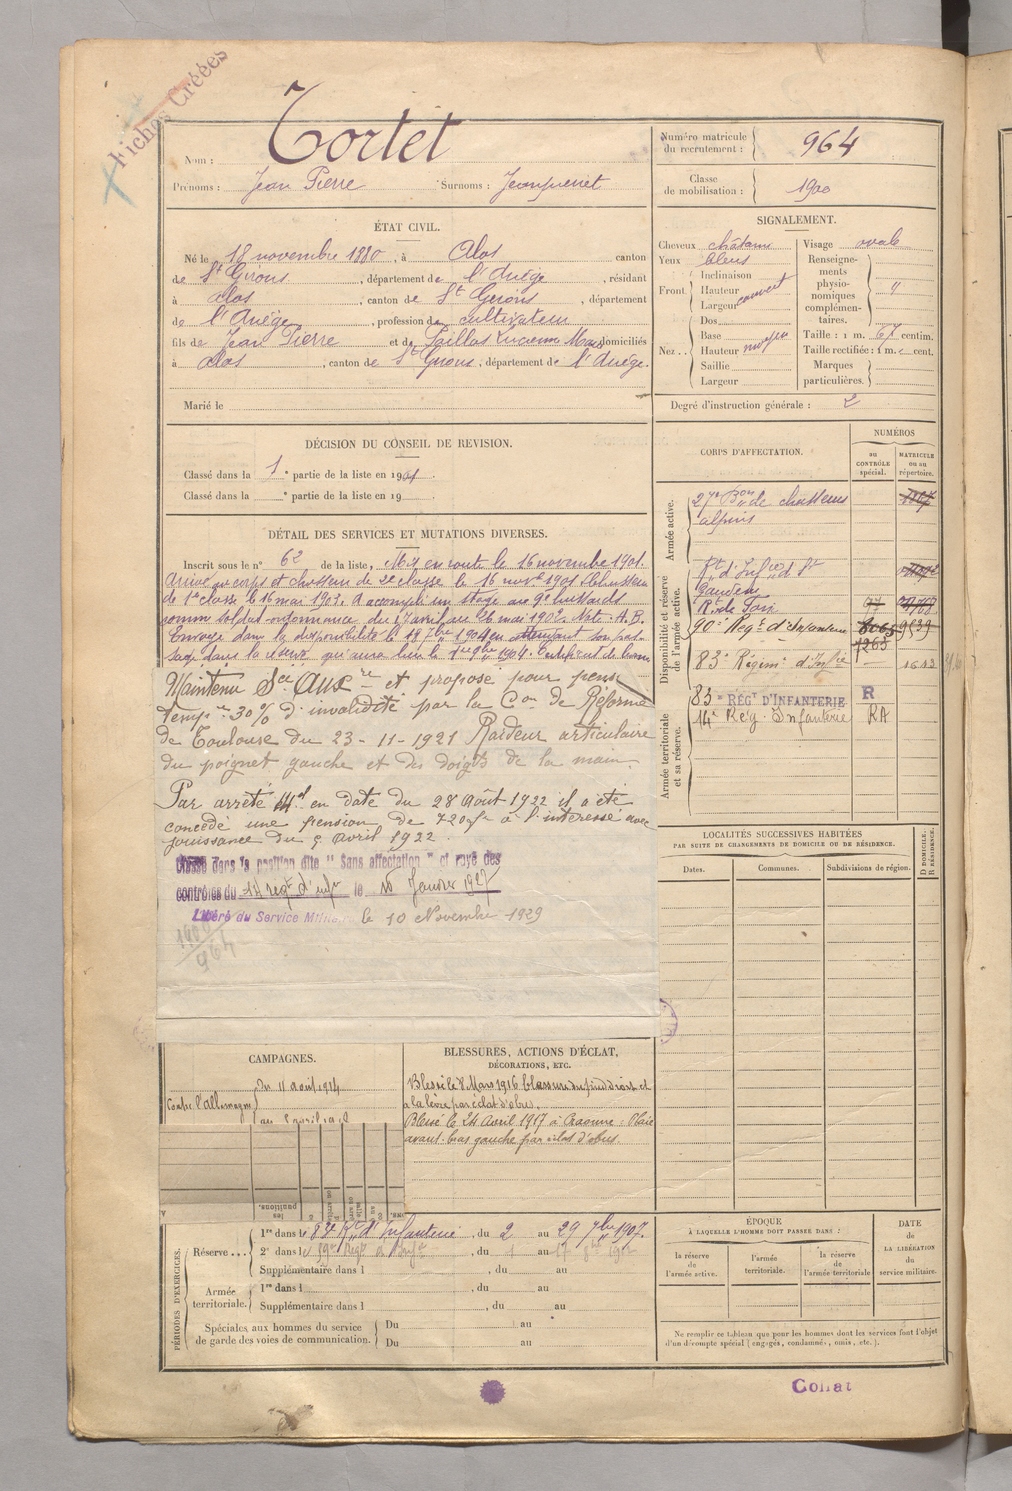 Fiches Créées
Nom : Tortet
Prénoms : Jean Pierre Surnoms : Jeanquenet
Numéro matricule du recrutement : 964
Classe de mobilisation : 1900
ÉTAT CIVIL.
Né le 18 novembre 1880, à Alos canton
de St Girons, département de l'Ariège, résidant
à Alos, canton de St Girons, département
de l'Ariège, profession de cultivateur
fils de Jean Pierre et de domiciliés
à Alos, canton de St Girons, département de l'Ariège.
Marié le
SIGNALEMENT.
Cheveux châtains
Yeux bleus
Front. Inclinaison
Hauteur
Largeur couvert
Nez.. Dos
Base
Hauteur moyen
Saillie
Largeur
Visage ovale
Renseignements physionomiques complémentaires. "
Taille : 1 m. 67 centim.
Taille rectifiée : 1 m. cent.
Marques particulières.
Degré d'instruction générale : 2
DÉCISION DU CONSEIL DE REVISION.
Classé dans la 1e partie de la liste en 1901.
Classé dans la e partie de la liste en 19
DÉTAIL DES SERVICES ET MUTATIONS DIVERSES.
Inscrit sous le n° 62 de la liste, Mis en route le 16 novembre 1901.
Arrivé au corps et chasseur de 2e classe le 16 novbre 1901. Chasseur
de 1e classe le 16 mai 1903. A accompli un stage au 9e hussards
comme soldat ordonnance du 17 avril au 26 mai 1902. Note A.B.
Envoyé dans la disponibilité le 19 7bre 1904 en attendant son pas-
sage dans la réserve qui aura lieu le 1er 9bre 1904. Certificat de bonne
Maintenu Sce Auxre et proposé pour pens
tempre 30% d'invalidité par la Con de Réforme
de Toulouse du 23-11-1921 Raideur articulaire
du poignet gauche et des doigts de la main.
Par arrêté Mel en date du 28 Août 1922 il a été
concédé une pension de 720f à l'intéressé avec
jouissance du 5 Avril 1922.
Classé dans la position dite "Sans affectation" et rayé des
contrôles du 14 régt d'infie le 10 Janvier 1927
Libéré du Service Militaire le 10 Novembre 1929
1900
964
CORPS D'AFFECTATION.
NUMÉROS
au CONTRÔLE spécial.
MATRICULE ou au répertoire.
Armée active.
27e Bon de chasseurs
alpins
Disponibilité et réserve de l'armée active.
Rt d'Infie de St
Gaudens
Rt de Foix
90e Régt d'Infanterie 9539
1265
83e Régimt d'Infie
Armée territoriale et sa réserve.
83e RÉGT D'INFANTERIE R
14e Rég. Infanterie RA
LOCALITÉS SUCCESSIVES HABITÉES
PAR SUITE DE CHANGEMENTS DE DOMICILE OU DE RÉSIDENCE.
Dates.
Communes.
Subdivisions de région.
D DOMICILE. R RÉSIDENCE.
CAMPAGNES.
Contre l'Allemagne
Du 11 août 1914
BLESSURES, ACTIONS D'ÉCLAT,
DÉCORATIONS, ETC.
Blessé le 8 Mars 1916 blessure du pied droit et
à la lèvre par éclat d'obus.
Blessé le 24 Avril 1917 à Craonne : Plaie
avant-bras gauche par éclat d'obus.
PÉRIODES D'EXERCICES.
Réserve...
1re dans le 83e Rt d'Infanterie, du 2 au 29 7bre 1907.
2e dans le 59e Régt d'Infie, du 1 au 17
Supplémentaire dans l , du au
Armée territoriale.
1re dans l , du au
Supplémentaire dans l , du au
Spéciales aux hommes du service de garde des voies de communication.
Du au
Du au
ÉPOQUE
À LAQUELLE L'HOMME DOIT PASSER DANS :
la réserve de l'armée active.
l'armée territoriale.
la réserve de l'armée territoriale
DATE DE LA LIBÉRATION du service militaire.
Ne remplir ce tableau que pour les hommes dont les services font l'objet
d'un décompte spécial (engagés, condamnés, omis, etc.).